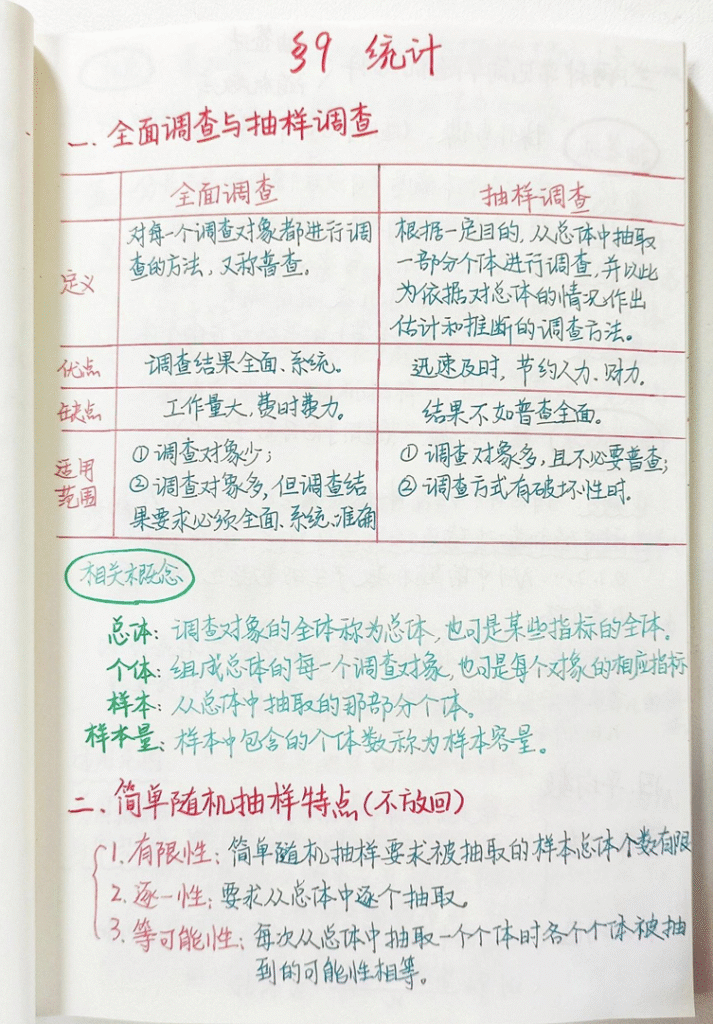 §9 统计
一、全面调查与抽样调查
全面调查 抽样调查
定义
对每一个调查对象都进行调
查的方法,又称普查。
根据一定目的,从总体中抽取
一部分个体进行调查,并以此
为依据对总体的情况作出
估计和推断的调查方法。
优点 调查结果全面、系统。 迅速及时,节约人力、财力。
缺点 工作量大,费时费力。 结果不如普查全面。
适用
范围
①调查对象少;
②调查对象多,但调查结
果要求必须全面、系统、准确
①调查对象多,且不必要普查;
②调查方式有破坏性时.
相关概念
总体:调查对象的全体称为总体,也可是某些指标的全体。
个体:组成总体的每一个调查对象,也可是每个对象的相应指标
样本:从总体中抽取的那部分个体。
样本量:样本中包含的个体数称为样本容量。
二、简单随机抽样特点(不放回)
1.有限性:简单随机抽样要求被抽取的样本总体个数有限
2.逐一性:要求从总体中逐个抽取。
3.等可能性:每次从总体中抽取一个个体时各个个体被抽
到的可能性相等。